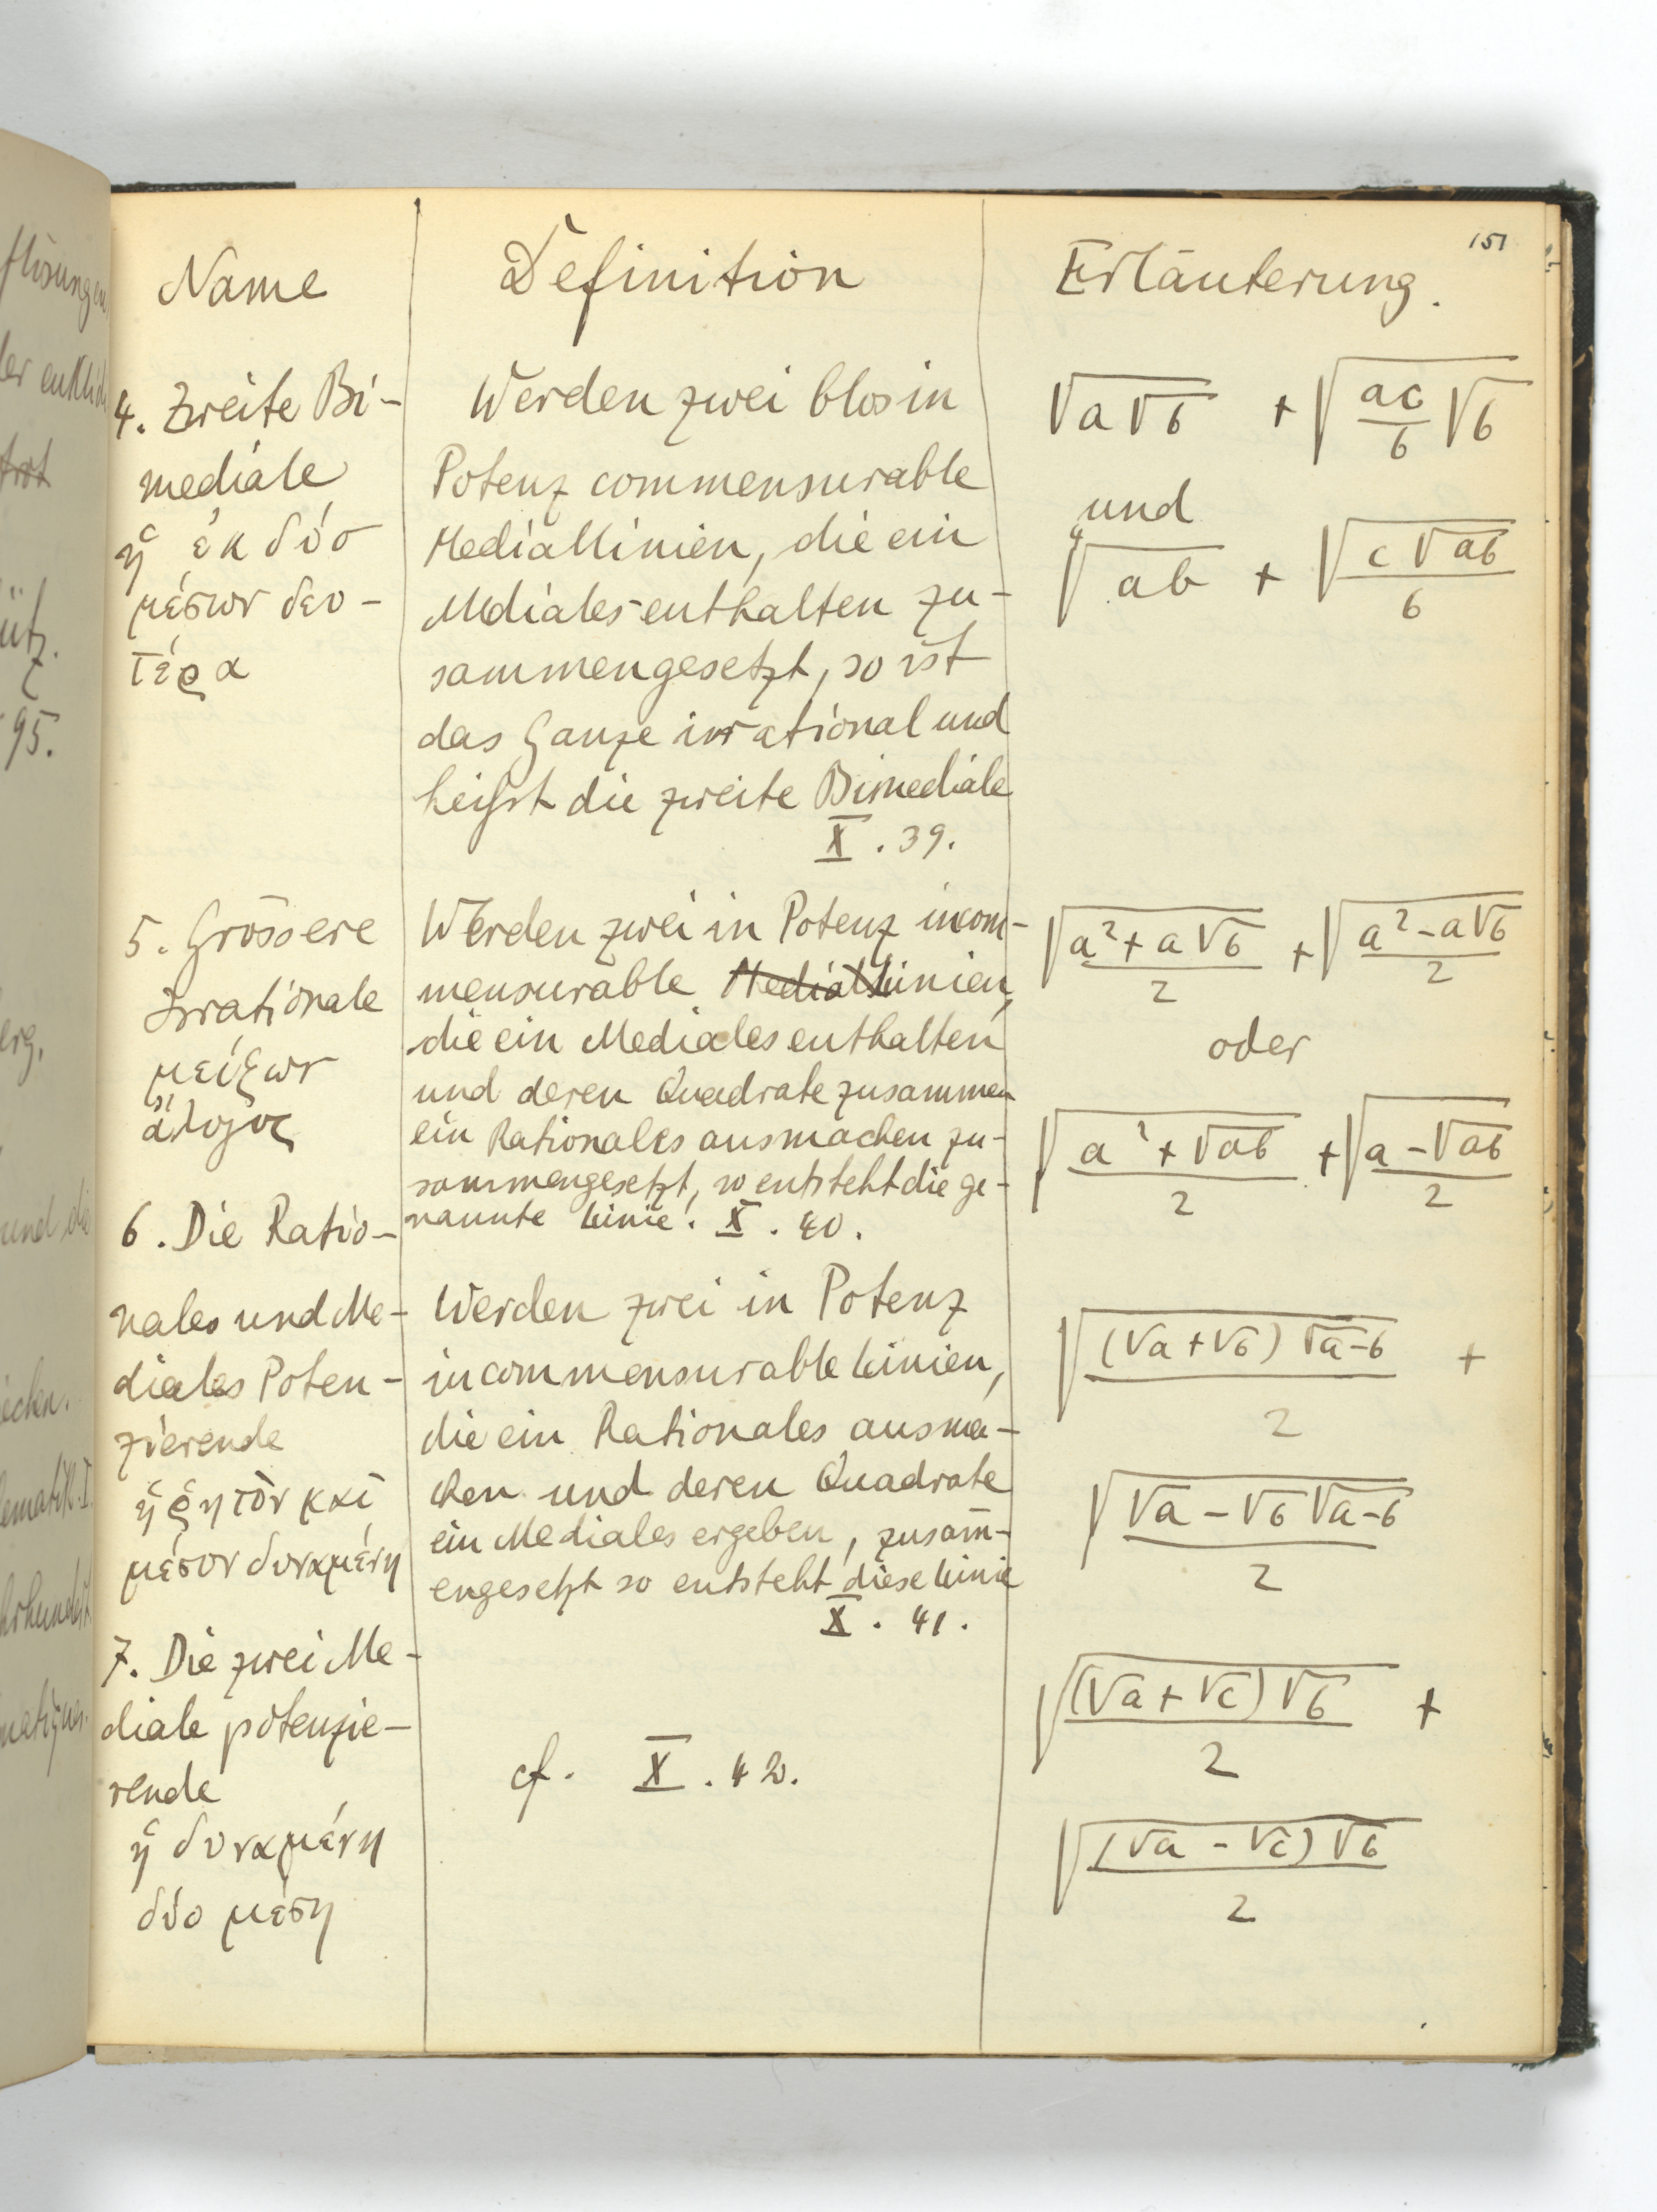 151
Name
Definition
Erläuterung.
4. Zweite Bi-
mediale
ἡ ἐκ δύο
μέσων δευ-
τέρα
Werden zwei blos in
Potenz commensurable
Mediallinien, die ein
Mediales enthalten zu-
sammengesetzt, so ist
das Ganze irrational und
heißt die zweite Bimediale
X . 39.
√a√b + √ac/b √b
und
∜ab + √c√ab/b
5. Grössere
Irrationale
μείζων
ἄλογος
Werden zwei in Potenz incom-
mensurable Mediallinien,
die ein Mediales enthalten
und deren Quadrate zusammen
ein Rationales ausmachen zu-
sammengesetzt, so entsteht die ge-
nannte Linie. X . 40.
√a²+a√b/2 + √a²-a√b/2
oder
√a²+√ab/2 + √a-√ab/2
6. Die Ratio-
nales und Me-
diales Poten-
zierende
ἡ ῥητὸν καὶ
μέσον δυναμένη
Werden zwei in Potenz
incommensurable Linien,
die ein Rationales ausma-
chen und deren Quadrate
ein Mediales ergeben, zusam̄-
engesetzt so entsteht diese Linie
X . 41.
√(√a+√b)√a-b/2 +
√√a-√b√a-b/2
7. Die zwei Me-
diale potenzie-
rende
ἡ δυναμένη
δύο μέση
cf. X . 42.
√(√a+√c)√b/2 +
√(√a-√c)√b/2
flösungen
95.
erg.
und die